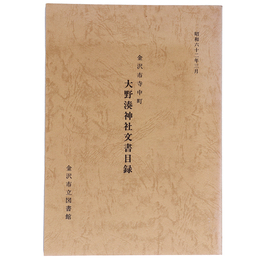 昭和六十二年三月
金沢市寺中町
大野湊神社文書目録
金沢市立図書館